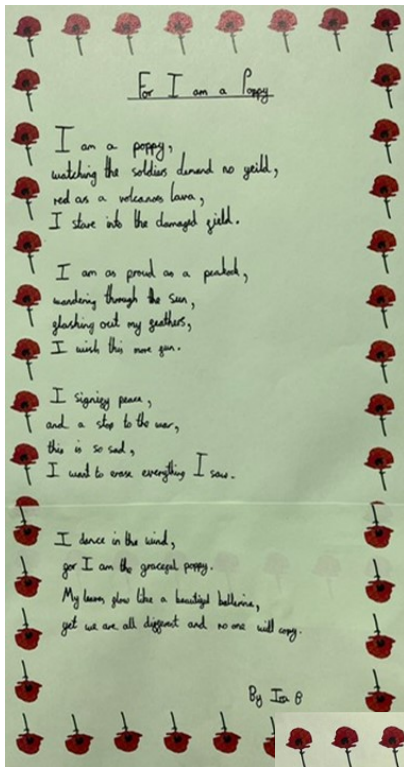 For I am a Poppy
I am a poppy,
watching the soldiers demand no yeild,
red as a volcanoes lava,
I stare into the damaged field.
I am as proud as a peacock,
wandering through the sun,
flashing out my feathers,
I wish this more fun.
I signify peace,
and a stop to the war,
this is so sad,
I want to erase everything I saw.
I dance in the wind,
for I am the graceful poppy.
My leaves flow like a beautiful ballerina,
yet we are all different and no one will copy.
By B